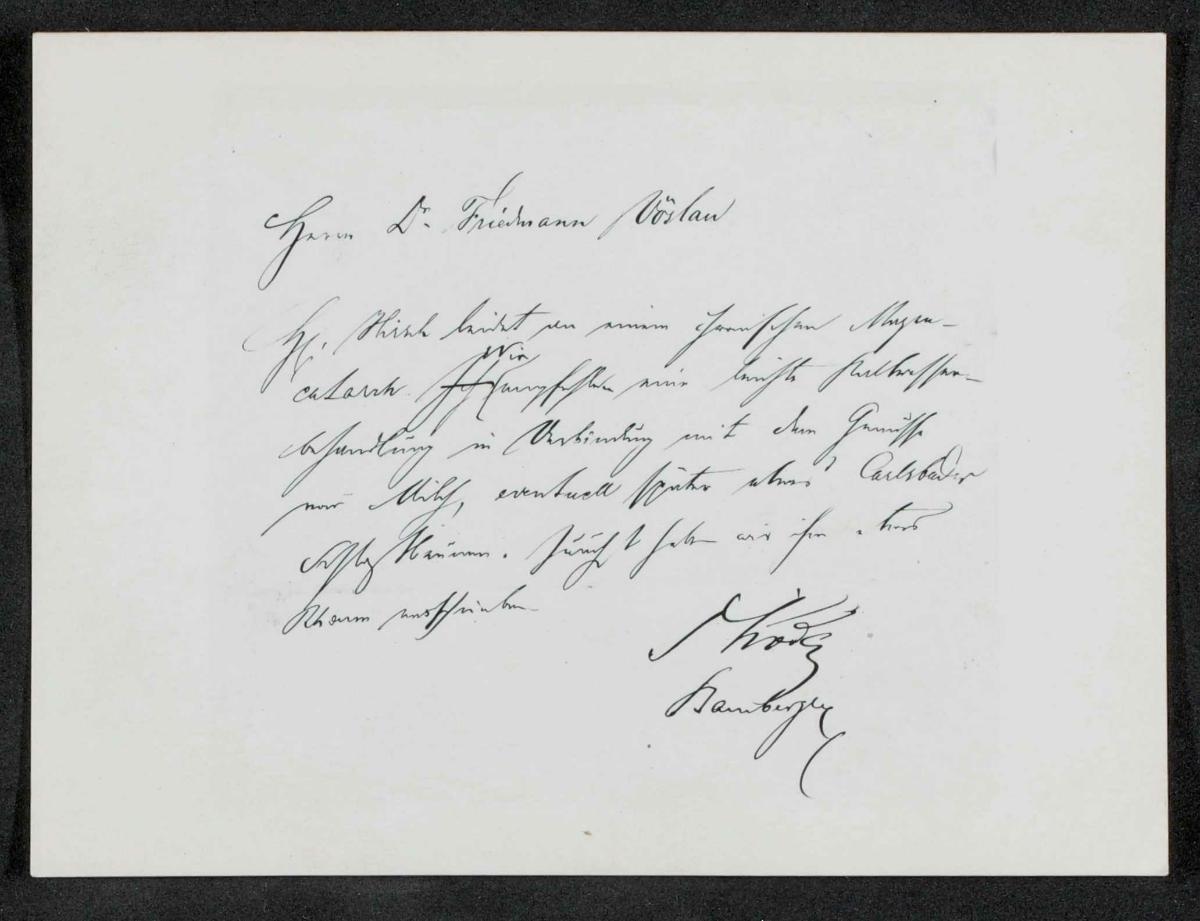 Herrn Dr. Friedmann Vöslau
H. Hirsch leidet an einem chronischen Magen-
catarrh. Wir empfehlen eine leichte Kaltwasser-
behandlung in Verbindung mit dem Genusse
von Milch, eventuell später etwas Carlsbader
Schloßbrunnen. Zunächst haben wir ihm etwas
Rheum verschrieben
Skoda
Bamberger